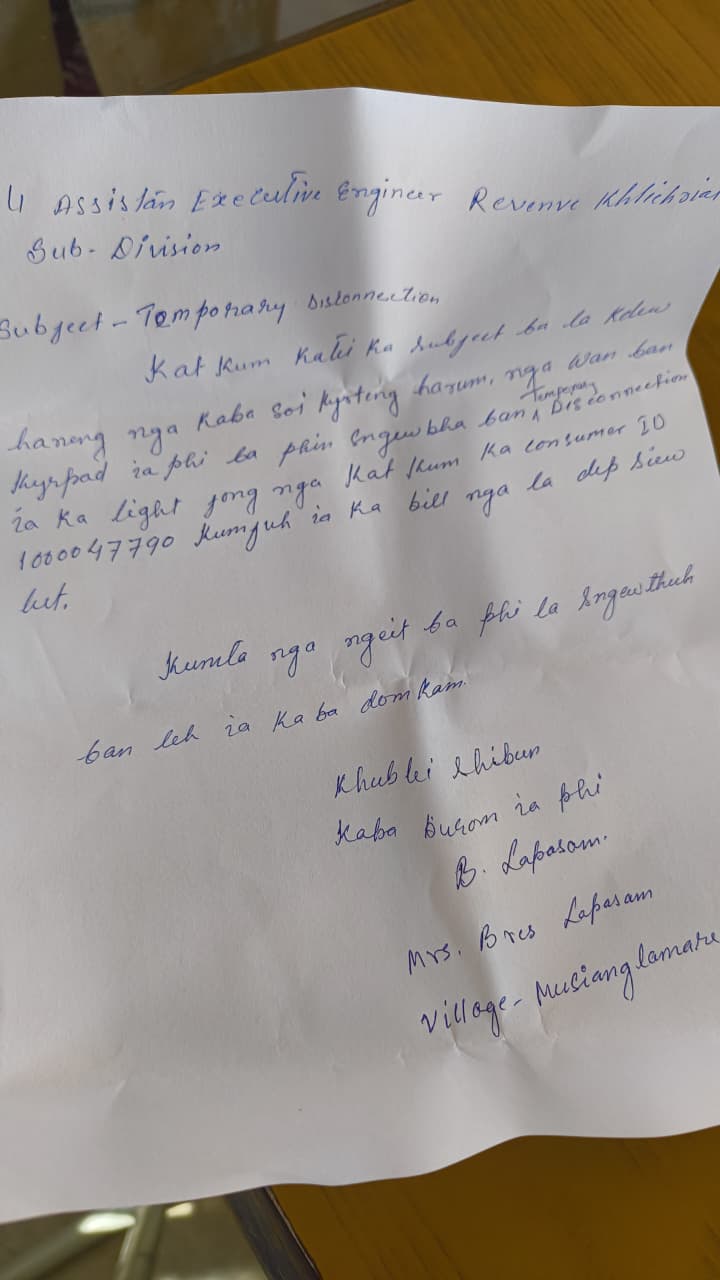 U Assistān Executive Engineer Revenue Khliehriat
Sub-Division
Subject - Temporary Disconnection
Kat kum katei ka subject ba la kdew
haneng nga kaba soi kyrteng harum, nga wan ban
kyrpad ia phi ba phin sngewbha ban Temporary Disconnection
ia ka light jong nga kat kum ka consumer ID
1000047790 kumjuh ia ka bill nga la dep siew
lut.
Kumta nga ngeit ba phi la sngewthuh
ban leh ia kaba donkam.
Khublei shibun
Kaba burom ia phi
B. Lapasam.
Mrs. Bres Lapasam
Village - Musianglamare